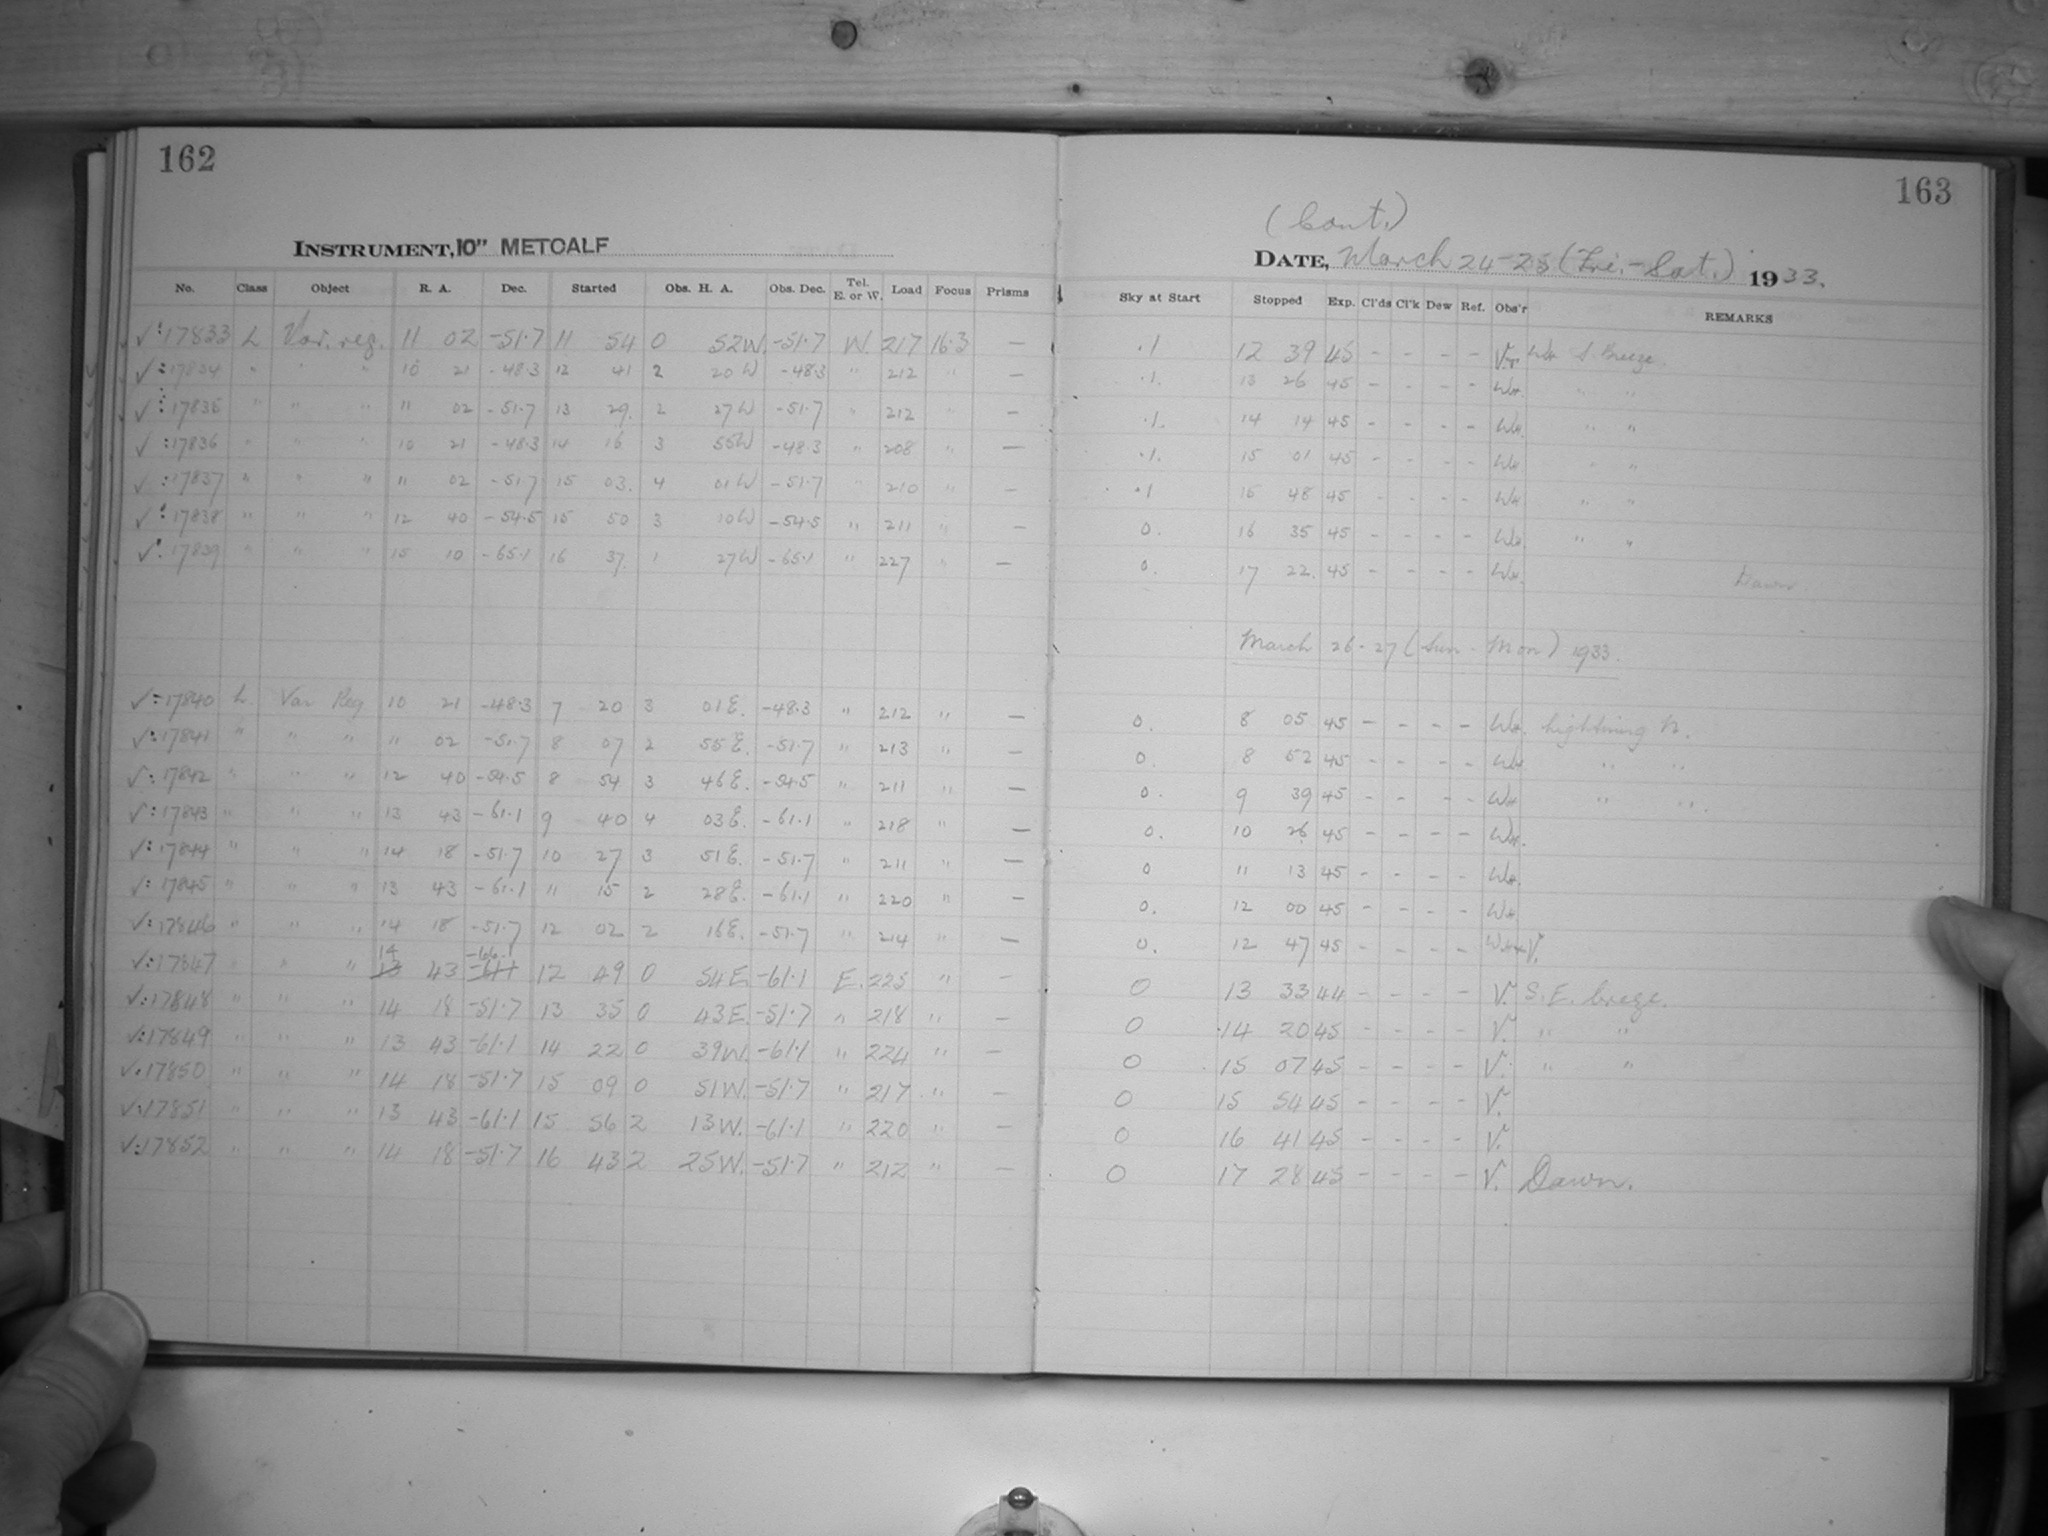 162
INSTRUMENT, 10" METCALF
No. Class Object R. A. Dec. Started Obs. H. A. Obs. Dec. Tel. E. or W. Load Focus Prisms
✓ 17833 L Var. reg. 11 02 -51.7 11 54 0 52W. -51.7 W. 217 16.3 —
✓ 17834 " " " 10 21 -48.3 12 41 2 20W -48.3 " 212 " —
✓ 17835 " " " 11 02 -51.7 13 29. 2 27W -51.7 " 212 " —
✓ 17836 " " " 10 21 -48.3 14 16 3 55W -48.3 " 208 " —
✓ 17837 " " " 11 02 -51.7 15 03. 4 01W -51.7 " 210 " —
✓ 17838 " " " 12 40 -54.5 15 50 3 10W -54.5 " 211 " —
✓ 17839 " " " 15 10 -65.1 16 37. 1 27W -65.1 " 227 " —
✓ 17840 L. Var Reg 10 21 -48.3 7 20 3 01E. -48.3 " 212 " —
✓ 17841 " " " 11 02 -51.7 8 07 2 55E. -51.7 " 213 " —
✓ 17842 " " " 12 40 -54.5 8 54 3 46E. -54.5 " 211 " —
✓ 17843 " " " 13 43 -61.1 9 40 4 03E. -61.1 " 218 " —
✓ 17844 " " " 14 18 -51.7 10 27 3 51E. -51.7 " 211 " —
✓ 17845 " " " 13 43 -61.1 11 15 2 28E. -61.1 " 220 " —
✓ 17846 " " " 14 18 -51.7 12 02 2 16E. -51.7 " 214 " —
✓ 17847 " " " 13 43 -61.1 12 49 0 54E. -61.1 E. 225 " —
✓ 17848 " " " 14 18 -51.7 13 35 0 43E. -51.7 " 218 " —
✓ 17849 " " " 13 43 -61.1 14 22 0 39W. -61.1 " 224 " —
✓ 17850 " " " 14 18 -51.7 15 09 0 51W. -51.7 " 217 " —
✓ 17851 " " " 13 43 -61.1 15 56 2 13W. -61.1 " 220 " —
✓ 17852 " " " 14 18 -51.7 16 43 2 25W. -51.7 " 212 " —
163
(Cont.)
DATE, March 24-25 (Fri.-Sat.) 1933.
Sky at Start Stopped Exp. Cl'ds Cl'k Dew Ref. Obs'r REMARKS
.1 12 39 45 - - - - S. Breeze.
.1. 13 26 45 - - - - WH. " "
.1. 14 14 45 - - - - WH. " "
.1. 15 01 45 - - - - WH " "
.1 15 48 45 - - - - WH " "
0. 16 35 45 - - - - WH " "
0. 17 22. 45 - - - - WH. Dawn.
March 26-27 (Sun - Mon) 1933.
0. 8 05 45 - - - - WH. Lightning N.
0. 8 52 45 - - - - WH " "
0. 9 39 45 - - - - WH " ".
0. 10 26 45 - - - - WH.
0 11 13 45 - - - - WH.
0. 12 00 45 - - - - WH
0. 12 47 45 - - - - WH+V.
0 13 33 44 - - - - V. S.E. breeze.
0 14 20 45 - - - - V. " "
0 15 07 45 - - - - V. " "
0 15 54 45 - - - - V.
0 16 41 45 - - - - V.
0 17 28 45 - - - - V. Dawn.